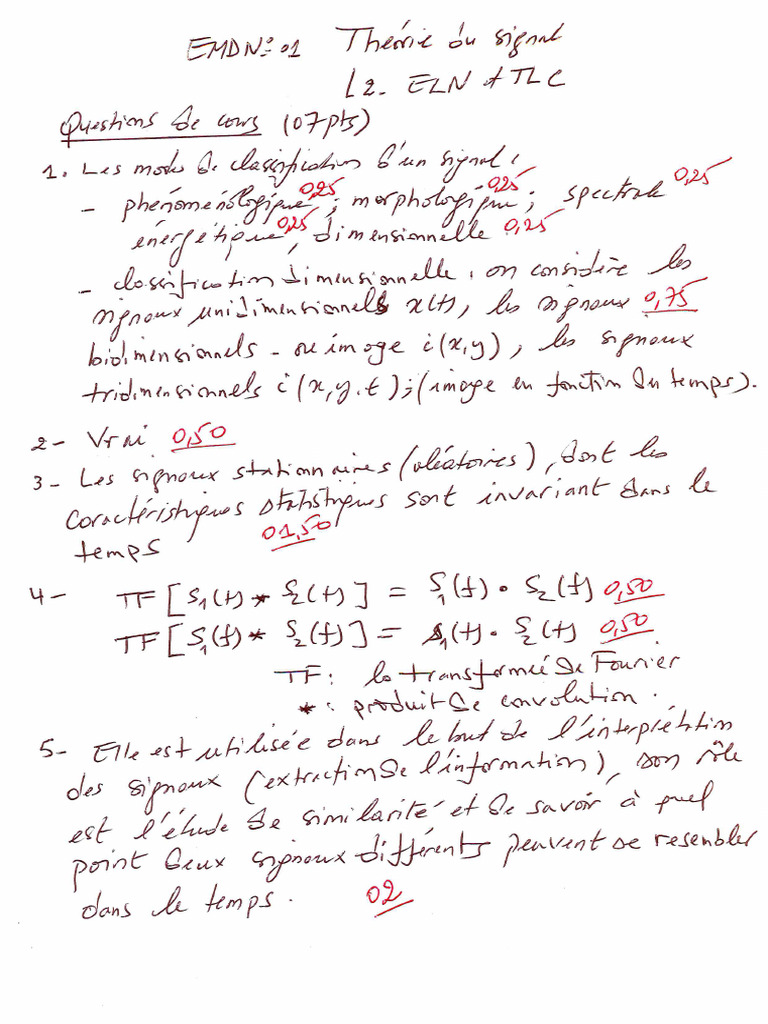 EMDN°:01 Théorie du signal
L2. ELN et TLC
Questions de cours (07pts)
1. Les modes de classification d'un signal :
- phénoménologique 0,25 ; morphologique 0,25 ; spectrale 0,25
énergétique 0,25, dimensionnelle 0,25
- classification dimensionnelle : on considère les
signaux unidimensionnels x(t), les signaux 0,75
bidimensionnels - ou image i(x,y), les signaux
tridimensionnels i(x,y.t); (image en fonction du temps).
2- Vrai 0,50
3- Les signaux stationnaires (aléatoires), dont les
caractéristiques statistiques sont invariant dans le
temps 01,50
4- TF[S1(t) * S2(t)] = S1(f) . S2(f) 0,50
TF[S1(f) * S2(f)] = s1(t) . S2(t) 0,50
TF : la transformée de Fourier
* : produit de convolution.
5- Elle est utilisée dans le but de l'interprétation
des signaux (extraction de l'information), son rôle
est l'étude de similarité et de savoir à quel
point deux signaux différents peuvent se resembler
dans le temps. 02